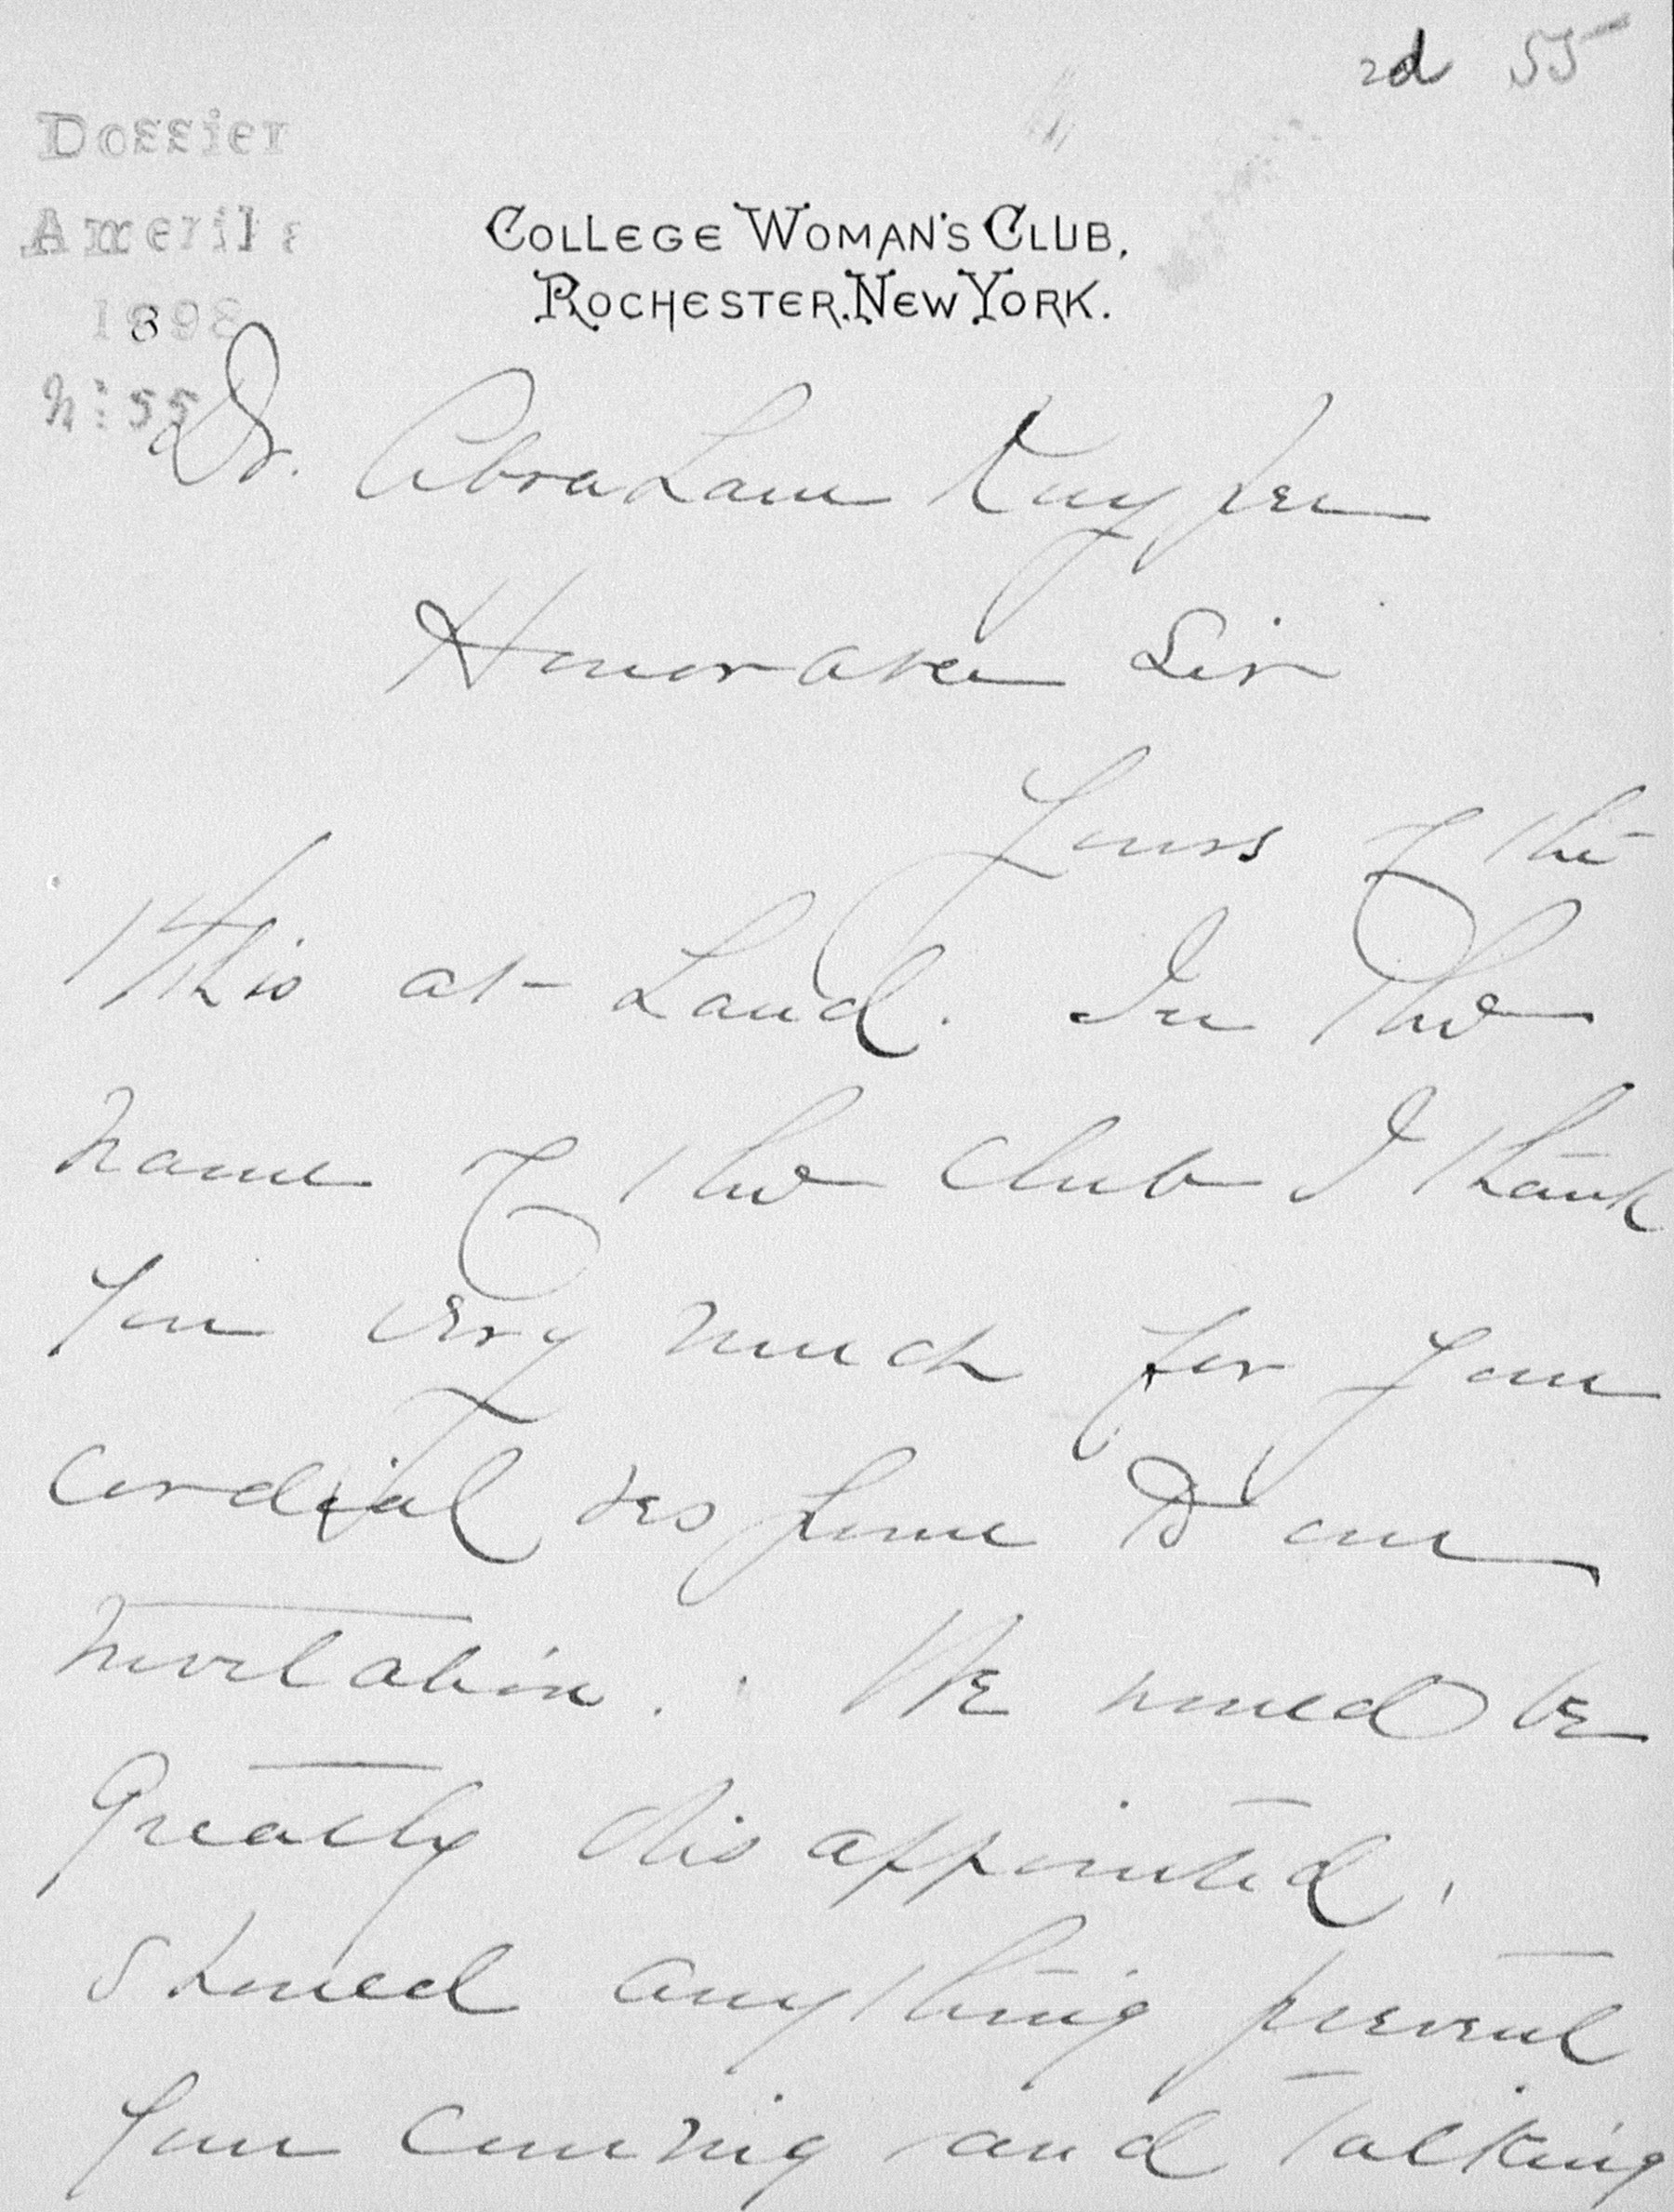 2d 55
Dossier
Amerika
1898
N: 55
COLLEGE WOMAN'S CLUB,
ROCHESTER, NEW YORK.
Dr. Abraham Kuyper
Honorable Sir
Yours of the
11th is at hand. In the
name of the Club I thank
you very much for your
cordial response to our
invitation. We would be
greatly disappointed,
should anything prevent
your coming and talking